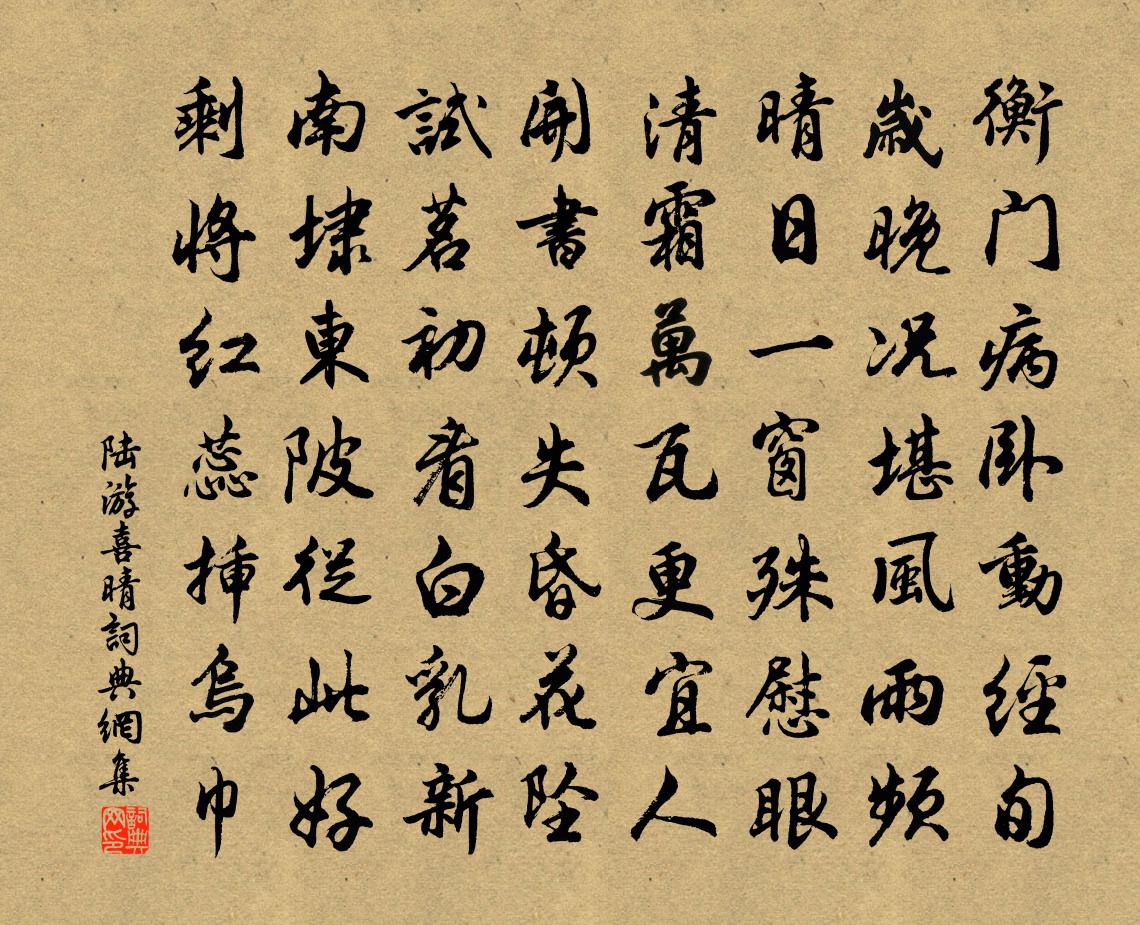 衡门病卧動經旬
歲晚况堪風雨頻
晴日一窗殊慰眼
清霜萬瓦更宜人
開書頓失昏花墜
試茗初看白乳新
南埭東陂從此好
剩將红蕊揷烏巾
陆游喜晴詞典網集
詞典网印